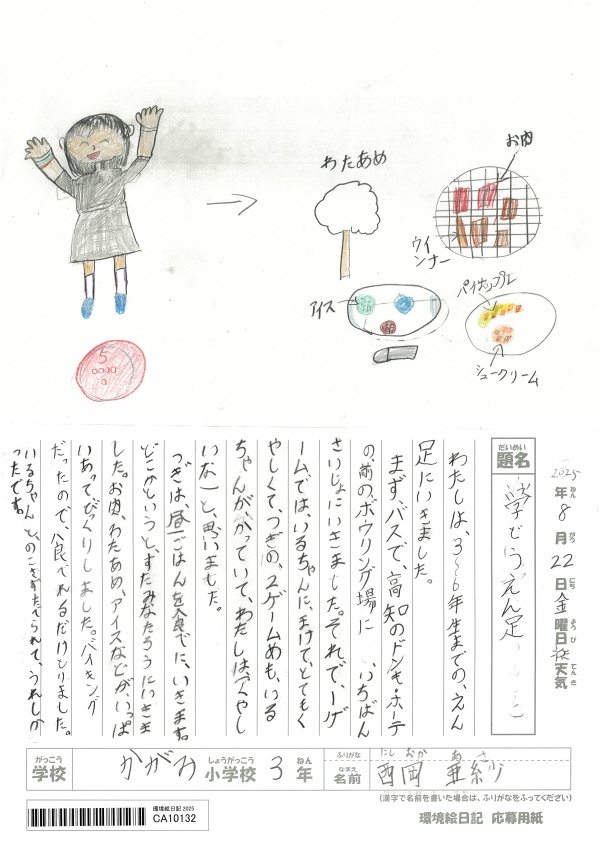 わたあめ
お肉
ウインナー
アイス
パイナップル
シュークリーム
5
だいめい
題名
学どうえん足
2025年8月22日金曜日
天気
ねん
がつ
にち
ようび
てんき
わたしは、3〜6年生までの、えん
足にいきました。
まず、バスで、高知のドンキ・ホーテ
の、前の、ボウリング場に、いちばん
さいしょにいきました。それで、1ゲ
ームでは、いるちゃんに、まけて、とてもく
やしくて、つぎの、2ゲームめも、いる
ちゃんが、かっていて、わたしは、くやし
いな」と、思いました。
つぎは、昼ごはんを食でに、いきます。
どこかというと、すたみなたろうにいきま
した。お肉、わたあめ、アイスなどが、いっぱ
いあって、びっくりしました。バイキング
だったので、食べれるだけとりました。
いるちゃんと、のこさずたべられて、うれしか
ったです。
がっこう
学校
かがみ
しょうがっこう
小学校
3
ねん
年
ふりがな
にしおか あさ
なまえ
名前
西岡 亜紗
(漢字で名前を書いた場合は、ふりがなをふってください)
環境絵日記 2025
CA10132
環境絵日記 応募用紙